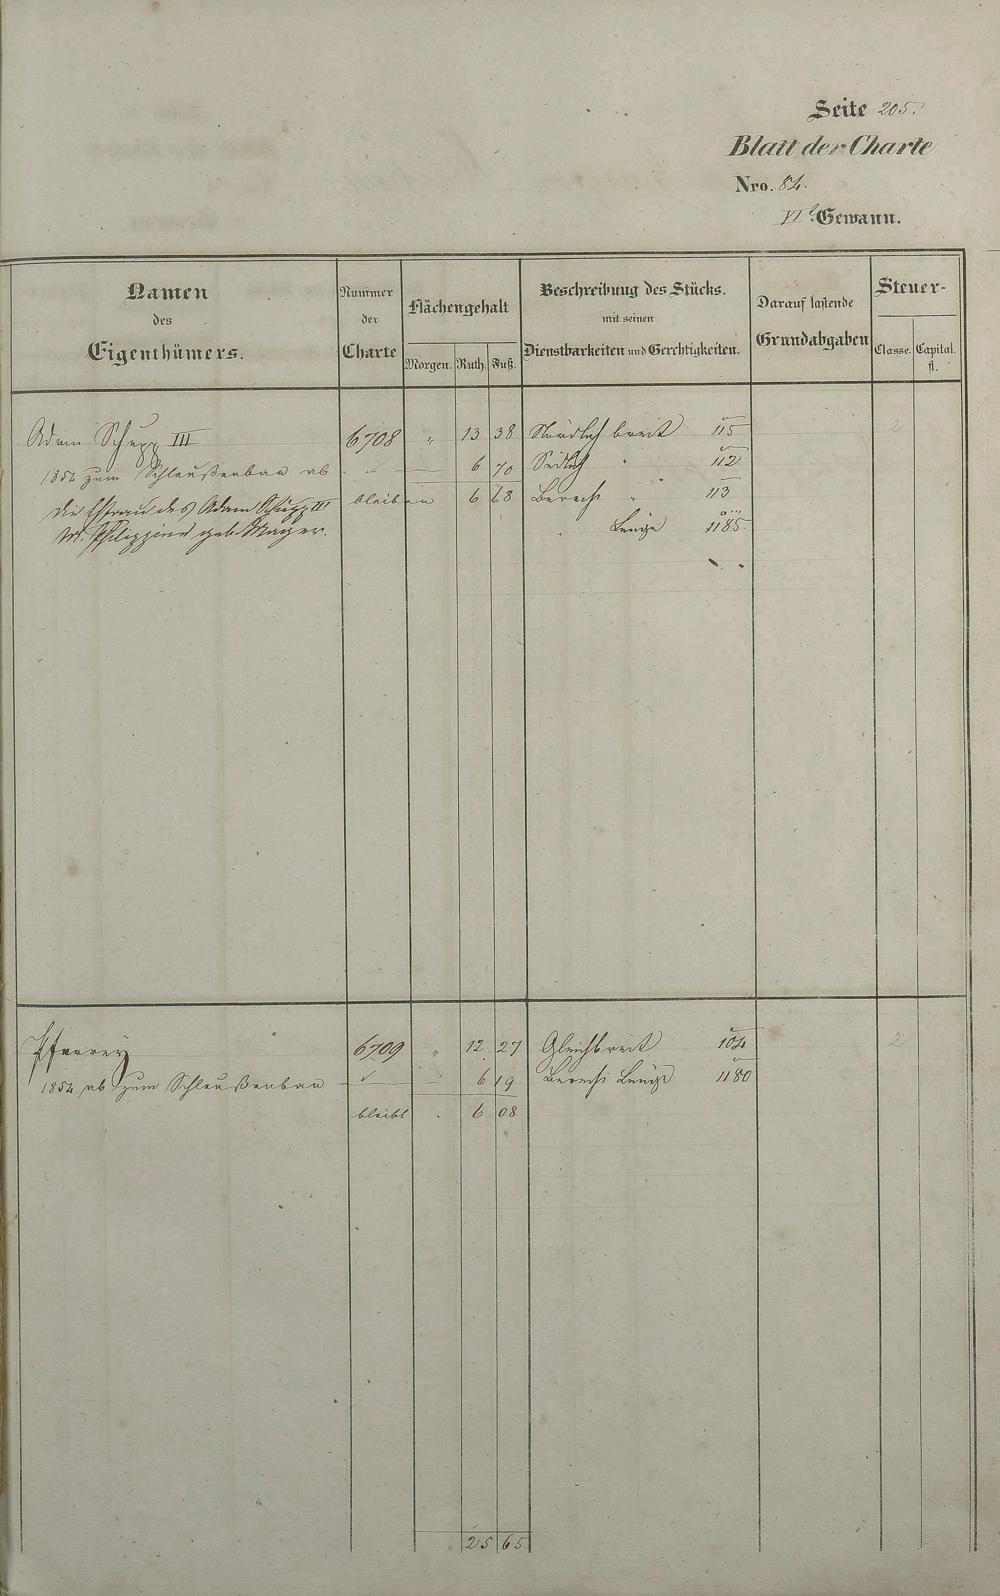 Seite 205.
Blatt der Charte
Nro. 84.
VIte Gewann.
Namen des Eigenthümers.
Nummer der Charte
Flächengehalt
Morgen. Ruth. Fuß.
Beschreibung des Stücks. mit seinen Dienstbarkeiten und Gerechtigkeiten.
Darauf lastende Grundabgaben
Steuer-
Classe. Capital. fl.
Adam Schupp III 6708 „ 13 38 Nördlich breit 115 2
1854 zum Schleußenbau ab — 6 70 Südlich " 112
die Ehefrau des Adam Schupp III bleiben 6 68 Berechn " 113
M. Philippine geb. Mayer. Länge 1185
Pfarrey 6709 „ 12 27 Gleichbreit 104 2
1854 ab zum Schleußenbau — 6 19 Berech Länge 1180
bleibt . 6 08
„ 25 65